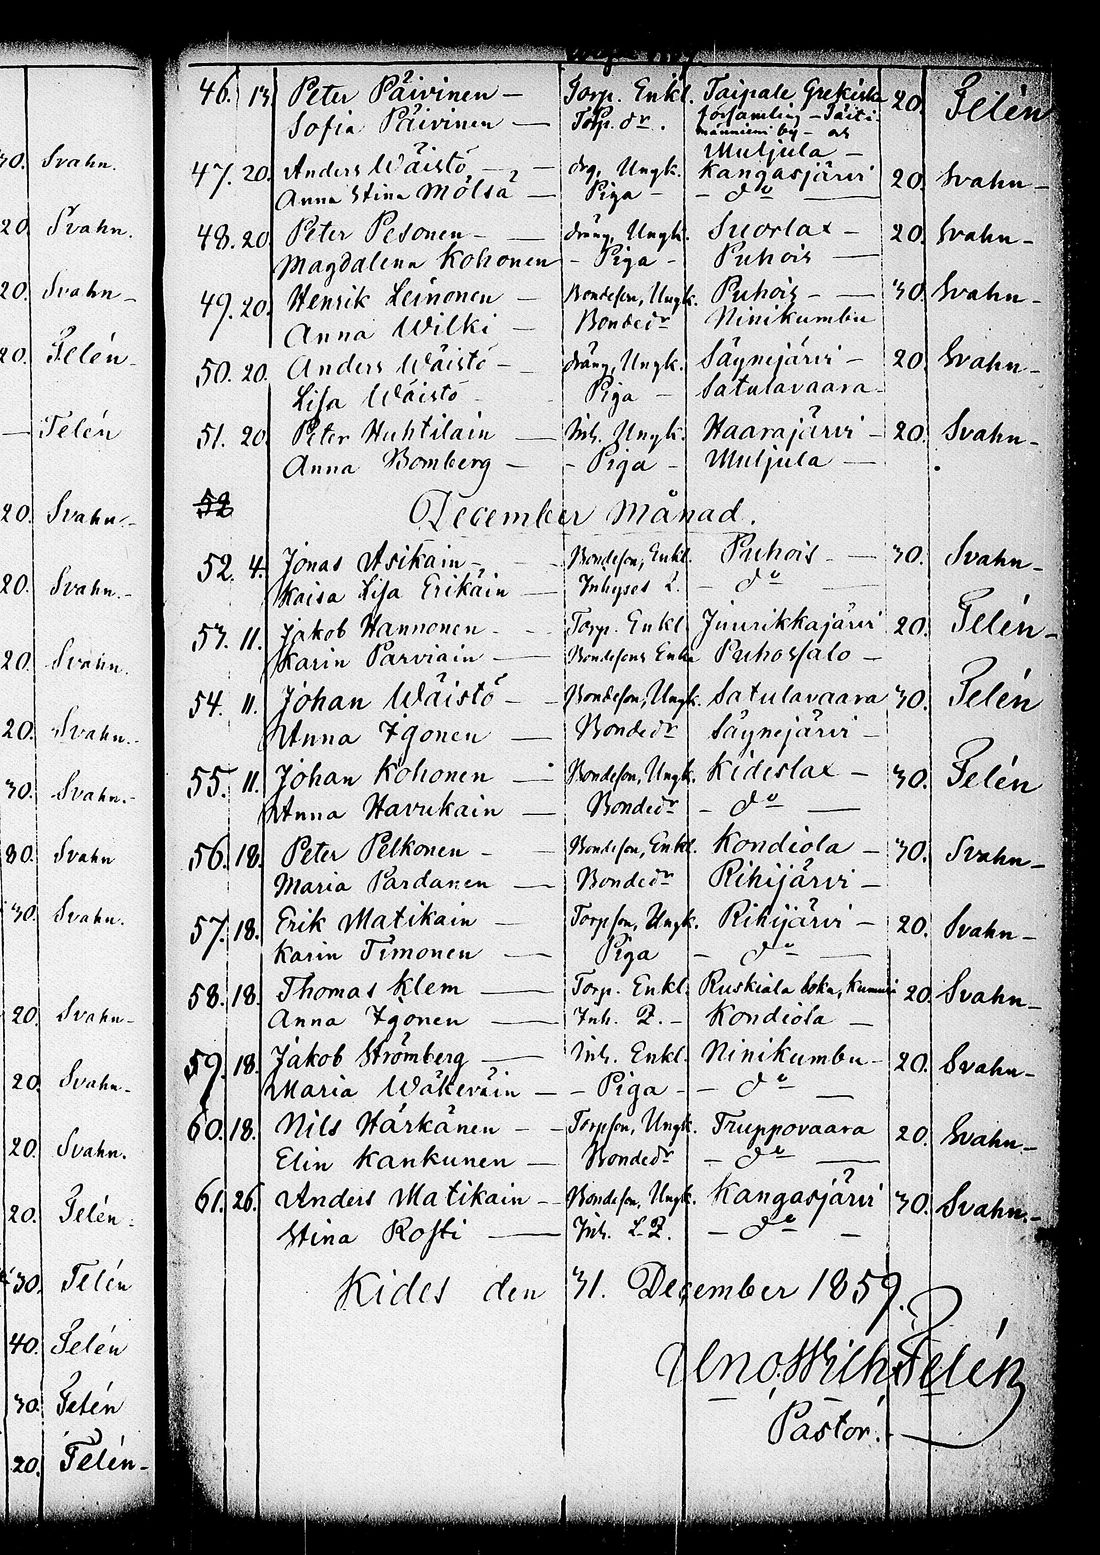 30. Svahn.
20. Svahn.
20. Svahn -
20. Telén -
— Telén
20. Svahn. -
20. Svahn. -
20. Svahn.
20. Svahn. -
30. Svahn. -
30. Svahn
30. Svahn.
20. Svahn -
20. Svahn -
20. Svahn.
20. Telén -
30. Telén
40. Telén
30. Telén
20. Telén -
46. 13 Peter Päivinen — Torp. Enkl. Taipale Grekiska 20. Telén
Sofia Päivinen — Torp. dr. församling - Päiti-
männiemi by - och
Muljula —
47. 20. Anders Wäistö — drg, Ungk. Kangasjärvi 20. Svahn -
Anna Stina Mölsä — Piga — - do —
48. 20. Peter Pesonen - — dräng, Ungk. Suorlax - 20. Svahn -
Magdalena Kohonen - Piga - Puhois —
49. 20. Henrik Leinonen — Bondeson, Ungk. Puhois - — 30. Svahn -
Anna Wilki — Bondedr Ninikumbu
50. 20. Anders Wäistö - — dräng, Ungk. Säynejärvi - 20. Svahn -
Lisa Wäistö Piga — Satulavaara -
51. 20. Peter Huhtilain — Inh. Ungk. Haarajärvi - 20. Svahn -
Anna Bomberg - - Piga - Muljula —
52
December Månad.
52. 4. Jonas Asikain - - Bondeson, Enkl. Puhois - — 30. Svahn -
Kaisa Lisa Erikäin — Inhyses D. - do —
53. 11. Jakob Hannonen - - Torp. Enkl. Juurikkajärvi 20. Telén -
Karin Parviain — Bondesons Enka Puhossalo —
54. 11. Johan Wäistö - - Bondeson, Ungk. Satulavaara 30. Telén
Anna Igonen — Bondedr Säynejärvi -
55. 11. Johan Kohonen — Bondeson, Ungk. Kideslax - 30. Telén
Anna Havukain — Bondedr - do —
56. 18. Peter Pelkonen - - Bondeson, Enkl. Kondiola - 30. Svahn -
Maria Pardanen — Bondedr Rihijärvi -
57. 18. Erik Matikain — Torpson, Ungk. Rihijärvi - 20. Svahn -
Karin Timonen — Piga - do —
58. 18. Thomas Klem — Torp. Enkl. Ruskiala Sokn, 20. Svahn -
Anna Igonen — Inh. D. - Kondiola —
59. 18. Jakob Strömberg — Inh. Enkl. Ninikumbu - 20. Svahn -
Maria Wäkeväin — - Piga - - do —
60. 18. Nils Härkänen — Torpson, Ungk. Truppovaara 20. Svahn -
Elin Kankunen — Bondedr - do —
61. 26. Anders Matikain - Bondeson, Ungk. Kangasjärvi 30. Svahn. -
Stina Rosti — Inh. L. D. - do -
Kides den 31. December 1859.
Uno Wilh. Telén
Pastor.